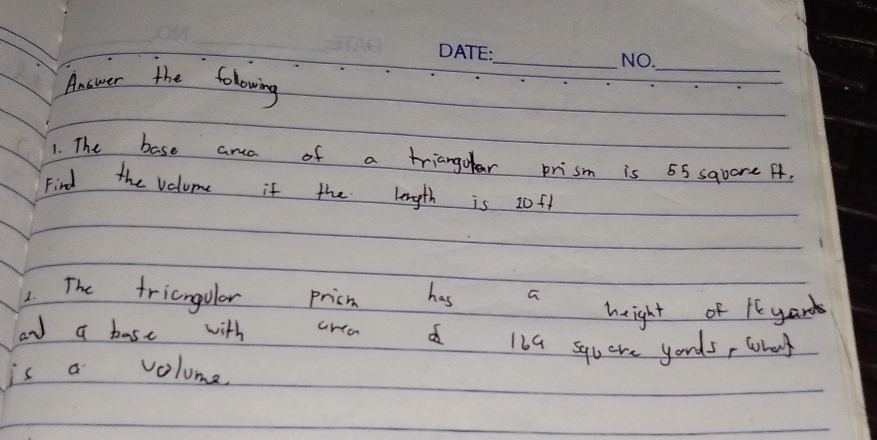 DATE:__________ NO.__________
Answer the folowing
1. The base area of a triangular prism is 55 square ft.
Find the volume if the length is 10 ft
2. The triangular prism has a height of yards
and a base with area of square yards, what
is a volume.